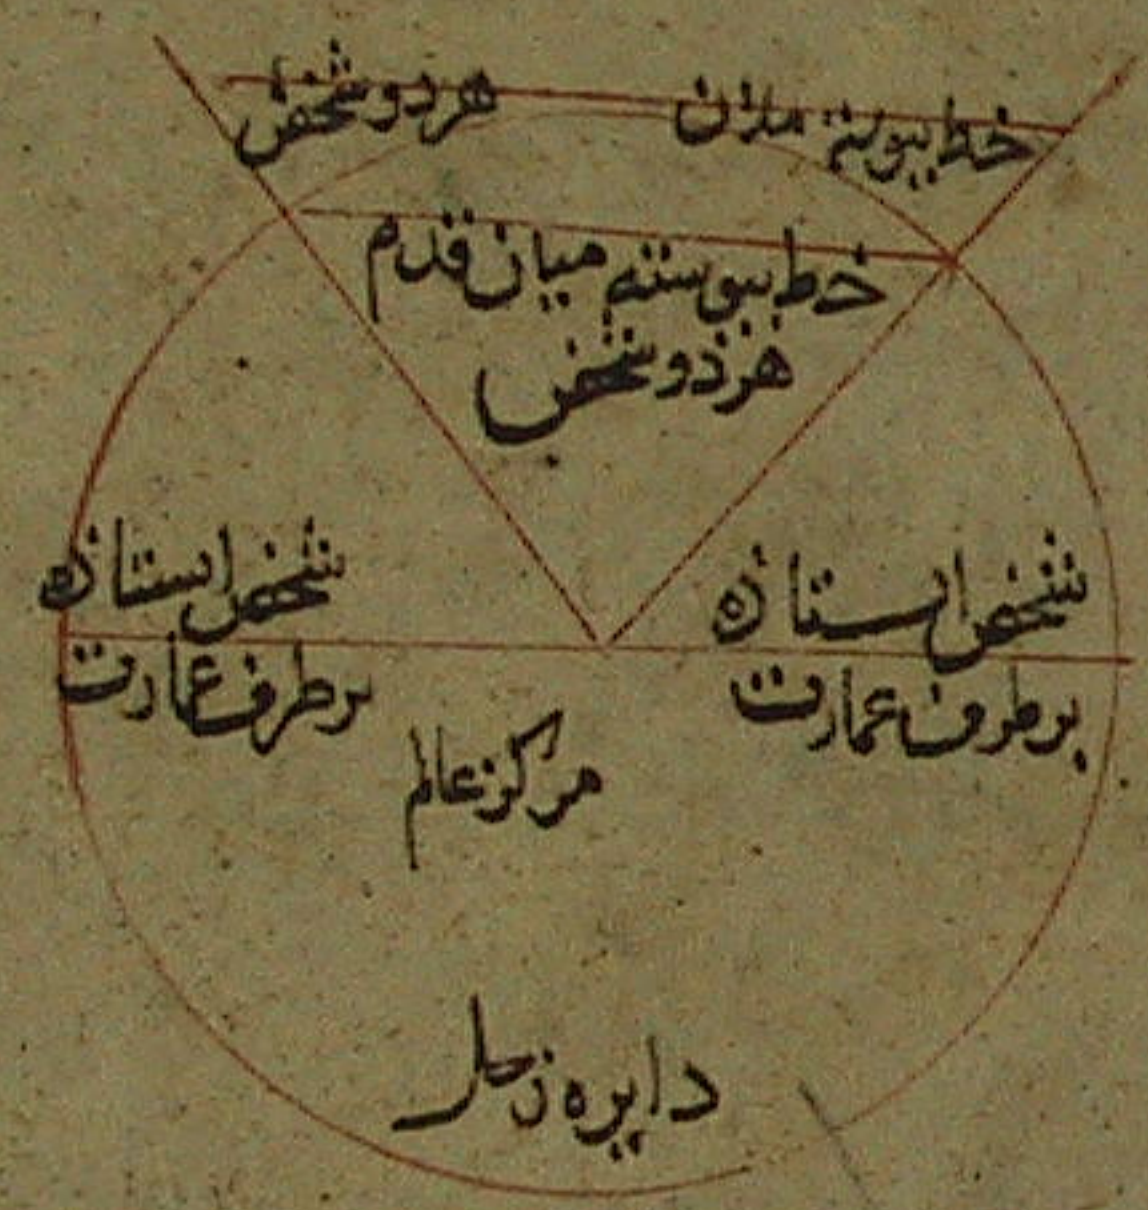 خط بیوسته میان هر دو شخص
خط بیوسته میان قدم
هر ذو شخص
شخص ایستاذه
بر طرف عمارت
شخص ایستاذه
بر طرف عمارت
مرکز عالم
دایره زحل